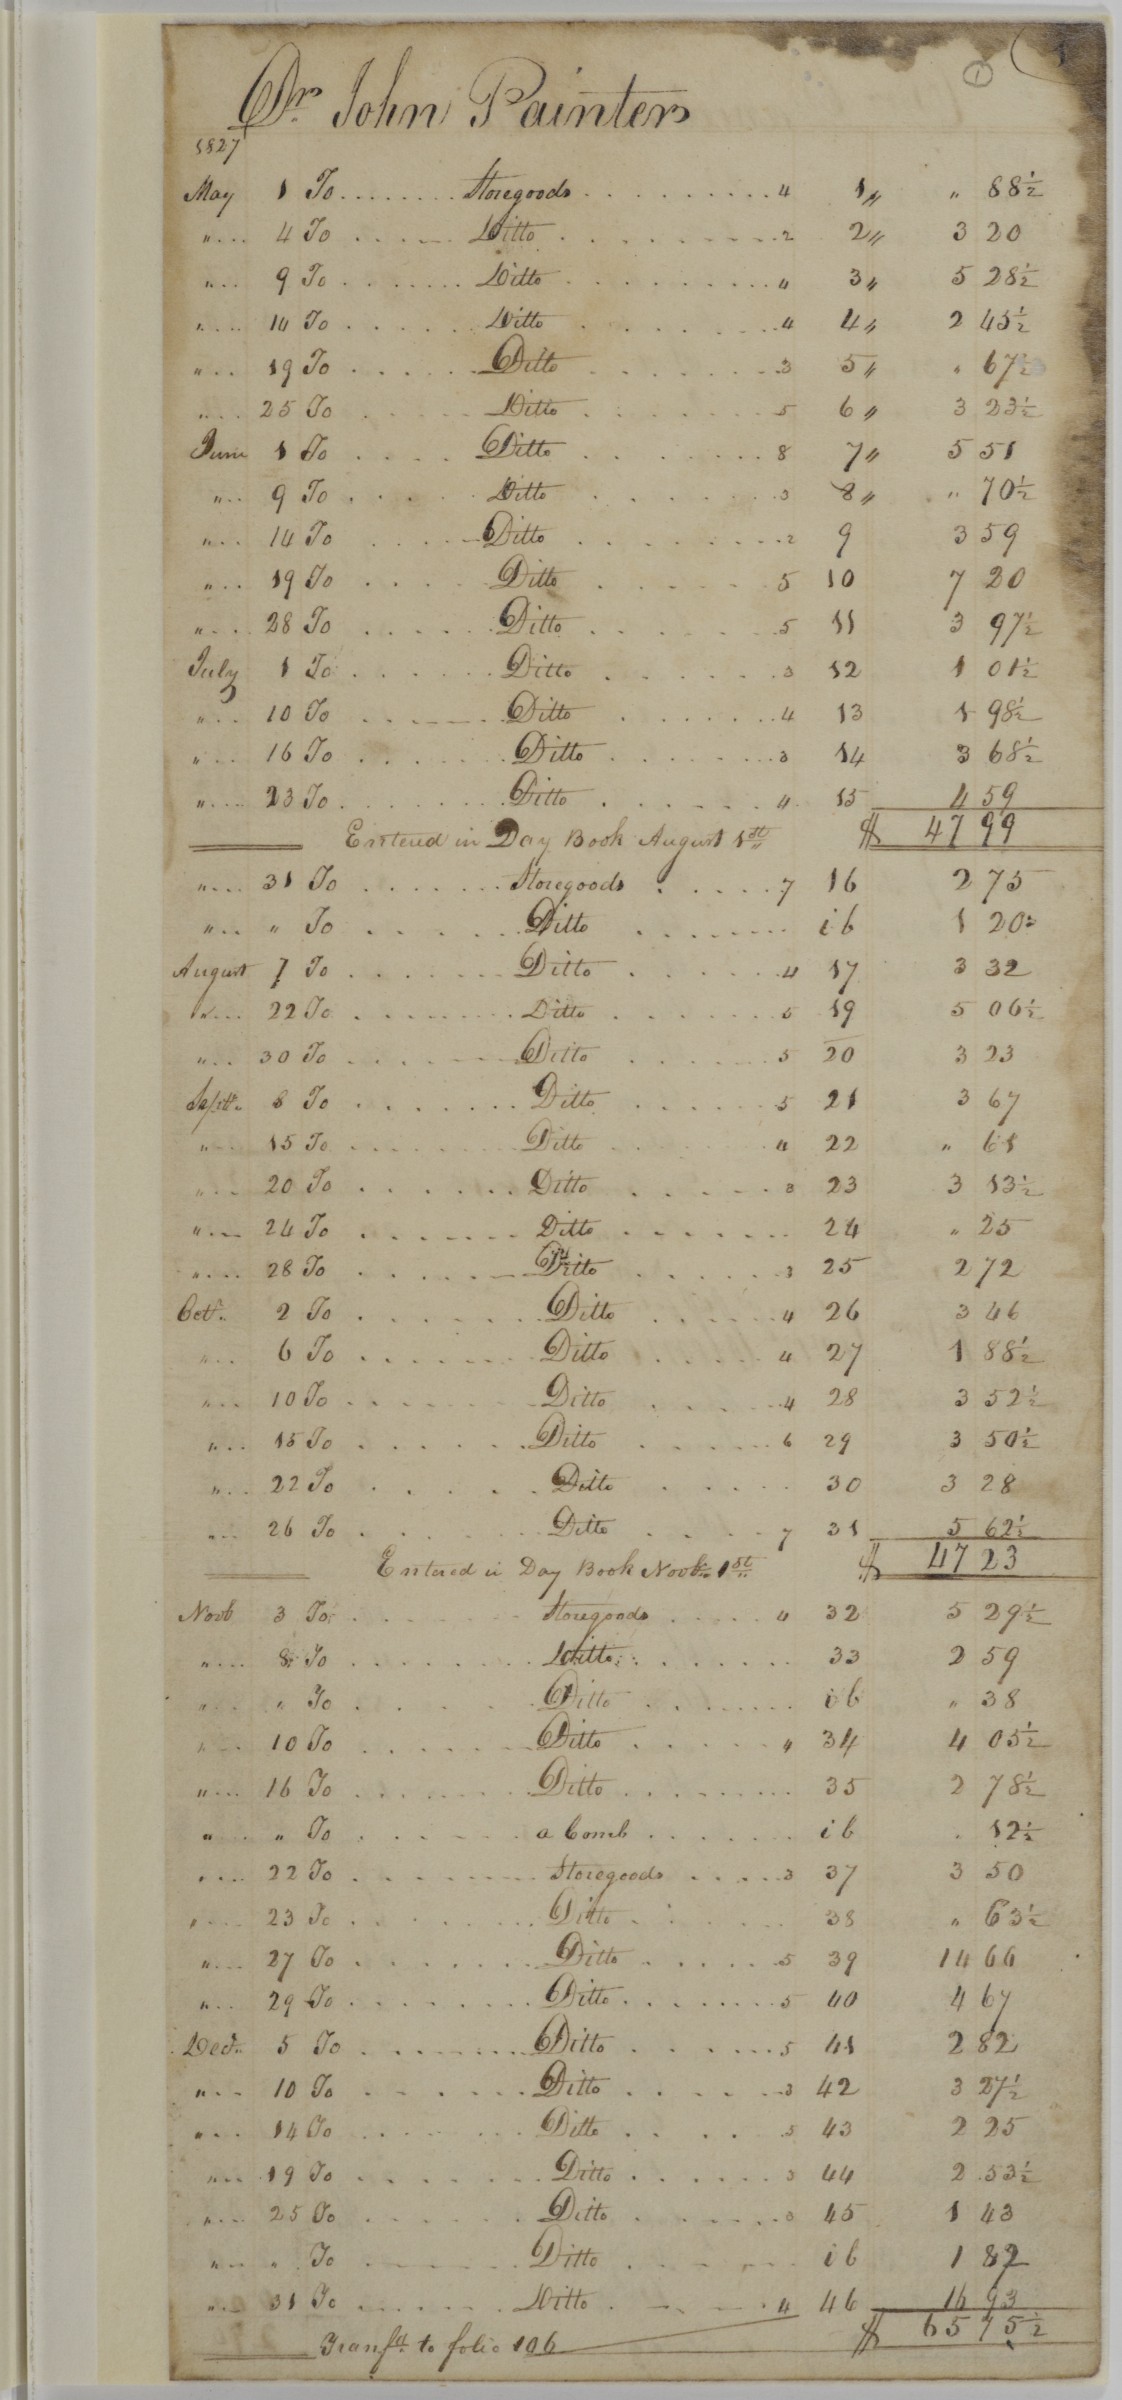 1
Drs John Painters
1827
May 1 To ........ Storegoods .......... 4 1 〃 〃 88½
〃... 4 To ....... Ditto ......... 2 2 〃 3 20
〃... 9 To ....... Ditto ......... 4 3 〃 5 28½
〃... 14 To ...... Ditto ........ 4 4 〃 2 45½
〃... 19 To ...... Ditto ........ 3 5 〃 〃 67½
〃... 25 To ...... Ditto ....... 5 6 〃 3 23½
June 1 To .... Ditto ........ 8 7 〃 5 51
〃... 9 To ...... Ditto ....... 3 8 〃 〃 70½
〃... 14 To ..... Ditto ........ 2 9 3 59
〃... 19 To ..... Ditto ...... 5 10 7 20
〃... 28 To ...... Ditto ....... 5 11 3 97½
July 1 To ...... Ditto ...... 3 12 1 01½
〃... 10 To ...... Ditto ...... 4 13 1 98½
〃... 16 To ...... Ditto ....... 3 14 3 68½
〃... 23 To ........ Ditto ...... 4 15 4 59
Entered in Day Book August 1st $ 47 99
〃... 31 To ....... Storegoods ..... 7 16 2 75
〃... 〃 To ...... Ditto ....... ib 1 20
August 7 To ....... Ditto ...... 4 17 3 32
〃... 22 To ........ Ditto ....... 5 19 5 06½
〃... 30 To ....... Ditto ...... 5 20 3 23
Septr. 8 To ....... Ditto ...... 5 21 3 67
〃... 15 To ........ Ditto ...... 4 22 〃 61
〃... 20 To ...... Ditto ..... 3 23 3 13½
〃... 24 To ....... Ditto ....... 24 〃 25
〃... 28 To ...... Ditto ...... 3 25 2 72
Octr. 2 To ....... Ditto ...... 4 26 3 46
〃... 6 To ....... Ditto ..... 4 27 1 88½
〃... 10 To ....... Ditto ..... 4 28 3 52½
〃... 15 To ...... Ditto ..... 6 29 3 50½
〃... 22 To ..... Ditto ..... 30 3 28
〃... 26 To ...... Ditto .... 7 31 5 62½
Entered in Day Book Novb. 1st $ 47 23
Novb 3 To ....... Storegoods ..... 4 32 5 29½
〃... 8 To ........ Ditto ....... 33 2 59
〃... 〃 To ..... Ditto ....... ib 〃 38
〃... 10 To ....... Ditto ...... 4 34 4 05½
〃... 16 To ....... Ditto ........ 35 2 78½
〃... 〃 To ...... a Comb ....... ib . 12½
〃... 22 To ........ Storegoods ..... 3 37 3 50
〃... 23 To ........ Ditto ...... 38 〃 63½
〃... 27 To ........ Ditto ...... 5 39 14 66
〃... 29 To ........ Ditto ........ 5 40 4 67
Decr. 5 To ........ Ditto ...... 5 41 2 82
〃... 10 To ...... Ditto ...... 3 42 3 27½
〃... 14 To ........ Ditto ..... 5 43 2 25
〃... 19 To ....... Ditto ...... 3 44 2 53½
〃... 25 To ...... Ditto ...... 3 45 1 43
〃... 〃 To ....... Ditto ...... ib 1 82
〃... 31 To ...... Ditto ..... 4 46 16 93
Transfd. to folio 106 $ 65 75½